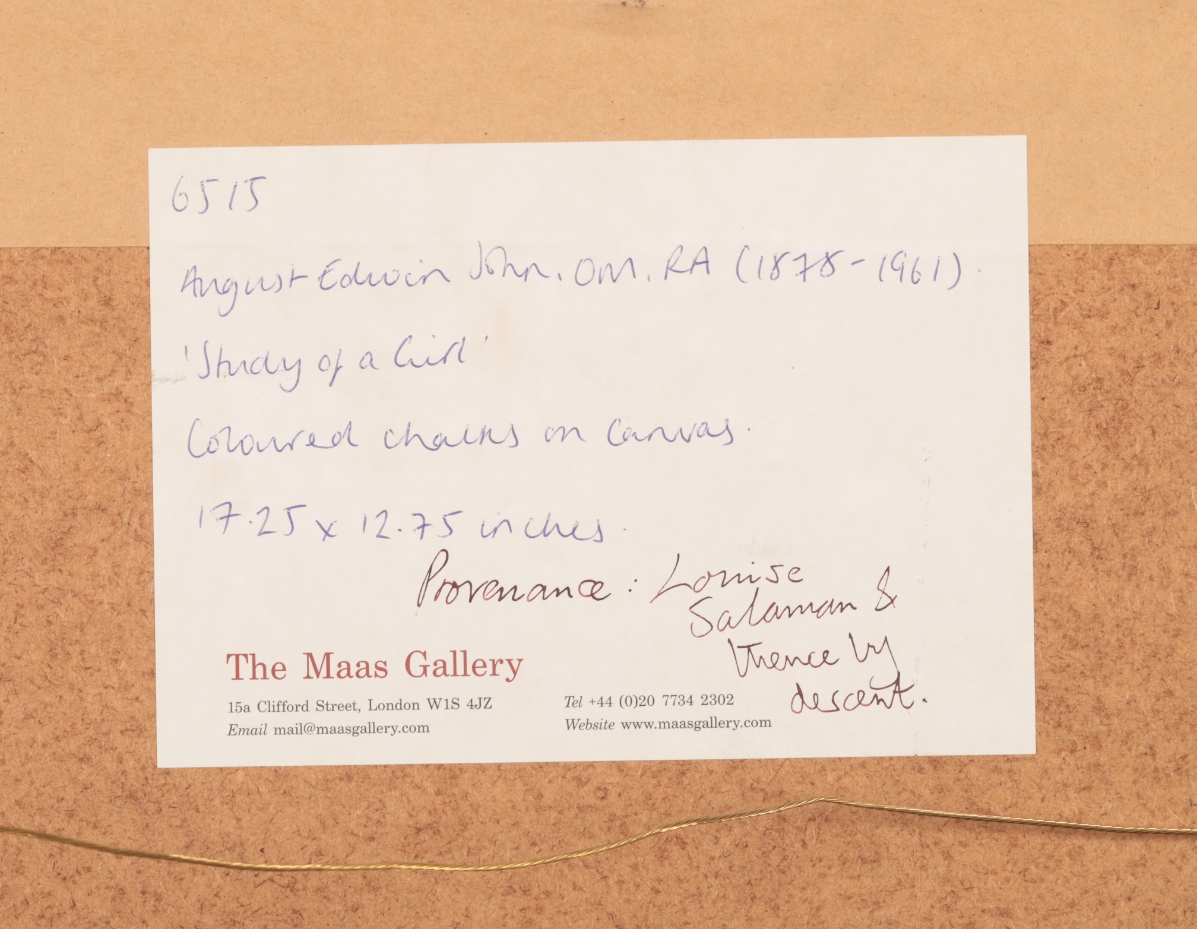 6515
August Edwin John, OM, RA (1878-1961)
'Study of a Girl'
Coloured chalks on canvas.
17.25 x 12.75 inches.
Provenance: Louise
Salaman &
thence by
descent.
The Maas Gallery
15a Clifford Street, London W1S 4JZ
Email mail@maasgallery.com
Tel +44 (0)20 7734 2302
Website www.maasgallery.com